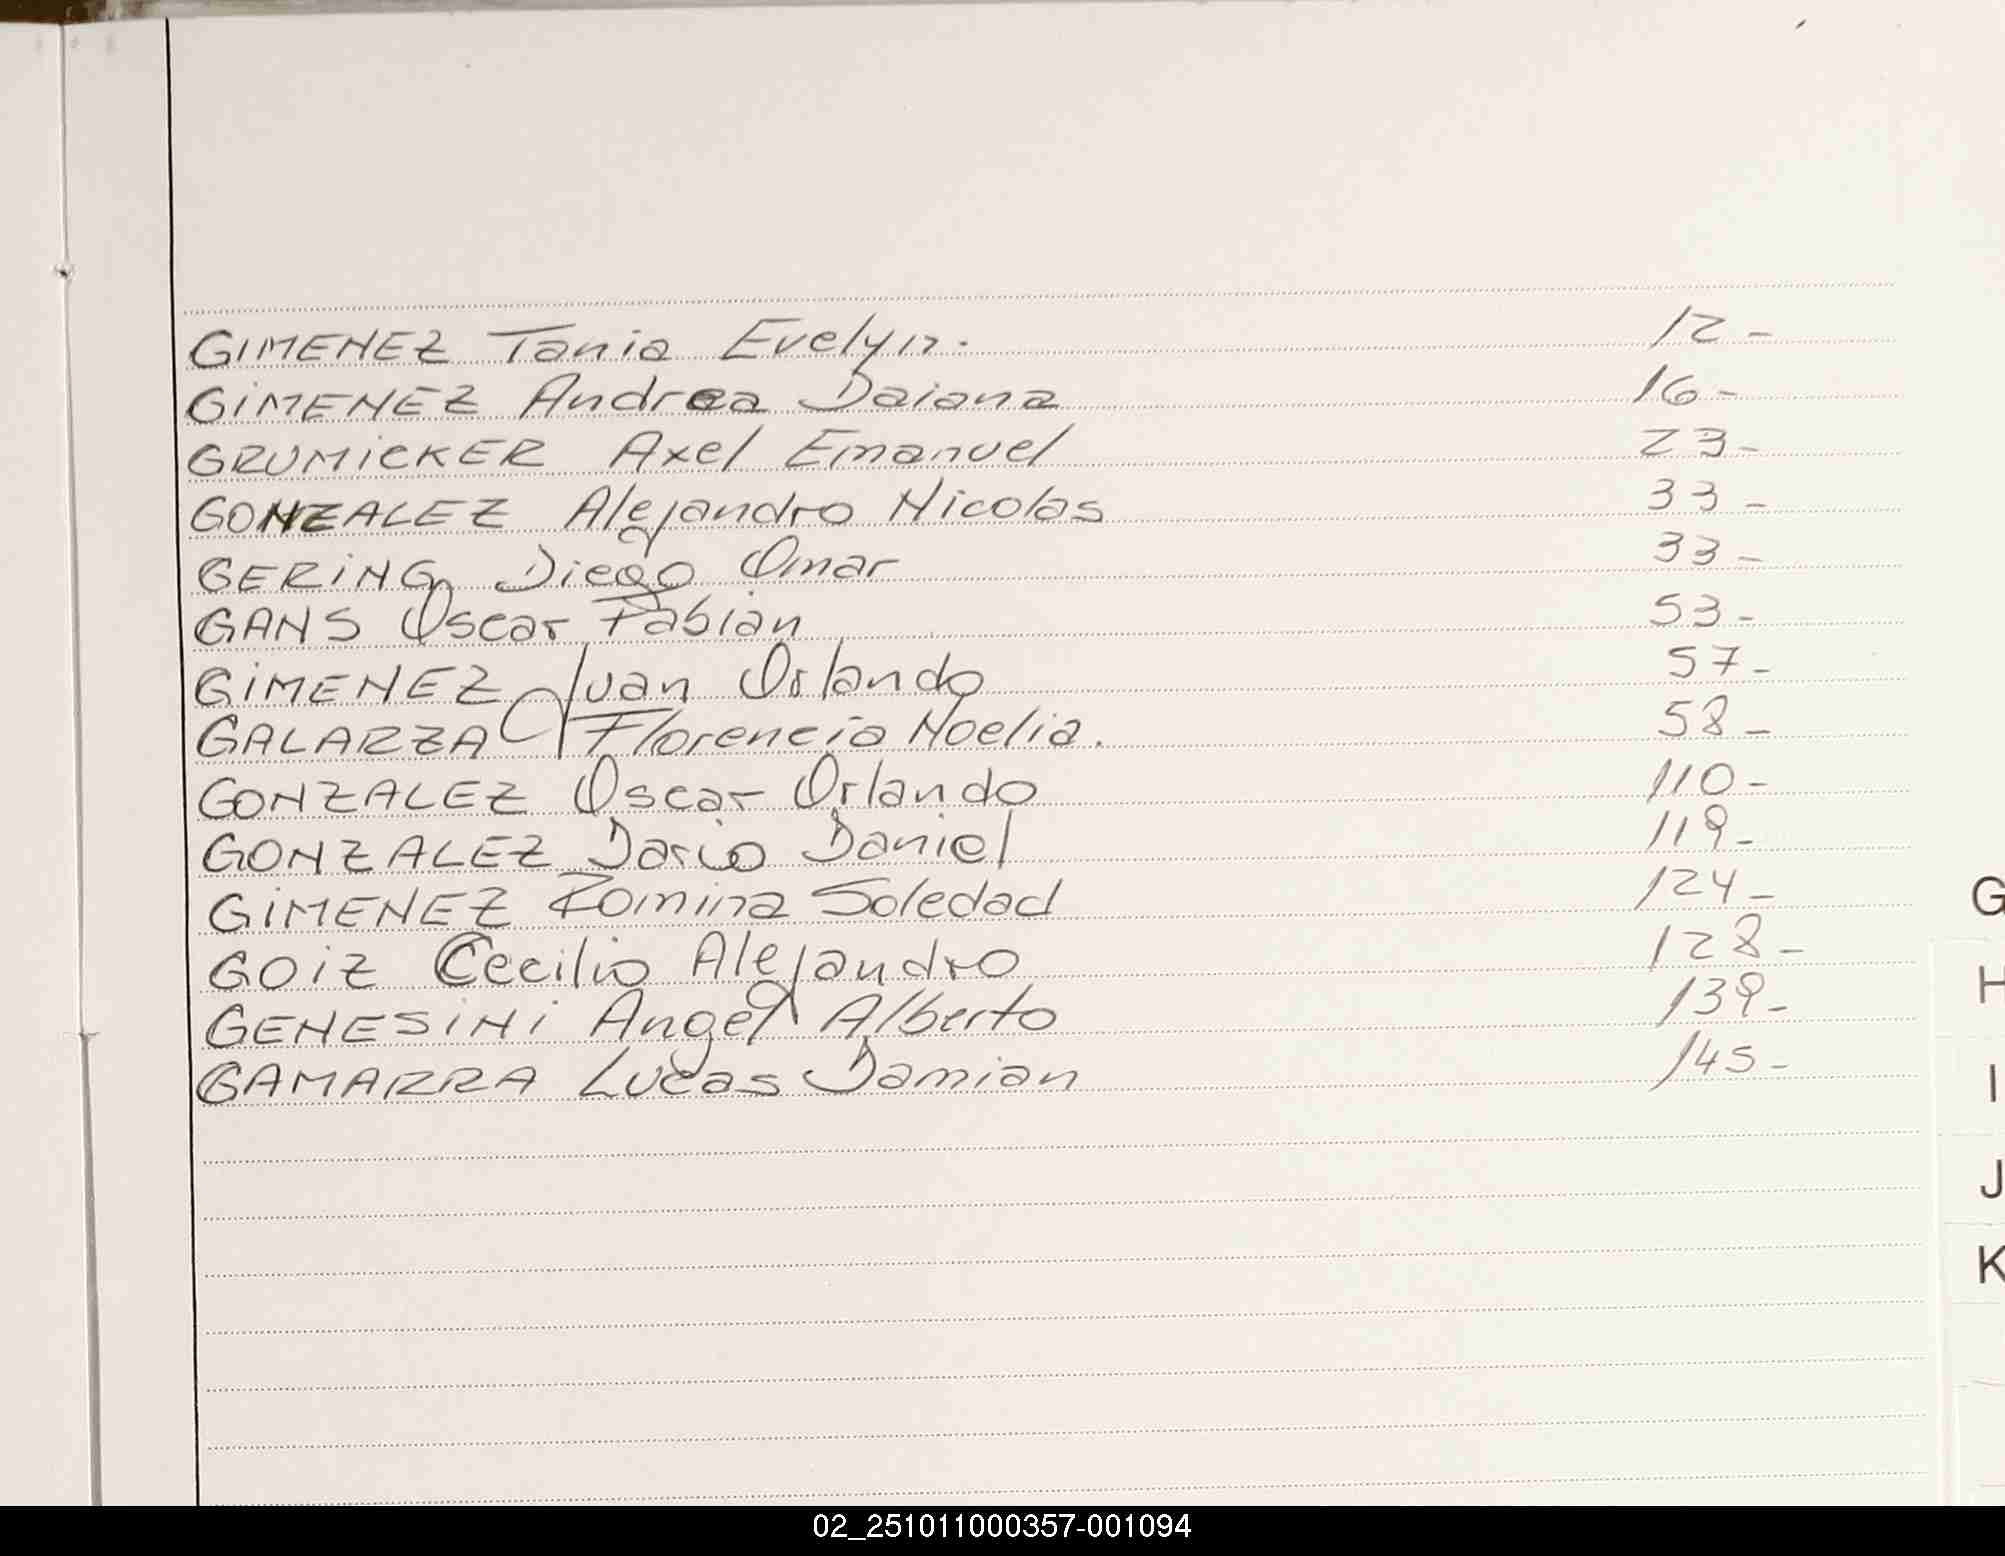 GIMENEZ Tania Evelyn. 12-
GIMENEZ Andrea Daiana 16-
GRUMICKER Axel Emanuel 23-
GONZALEZ Alejandro Nicolas 33-
GERING Diego Omar 33-
GANS Oscar Fabian 53-
GIMENEZ Juan Orlando 57-
GALARZA Florencia Noelia. 58-
GONZALEZ Oscar Orlando 110-
GONZALEZ Dario Daniel 119-
GIMENEZ Romina Soledad 124-
GOIZ Cecilio Alejandro 128-
GENESINI Angel Alberto 139-
GAMARRA Lucas Damian 145-
G
H
I
J
K
02_251011000357-001094